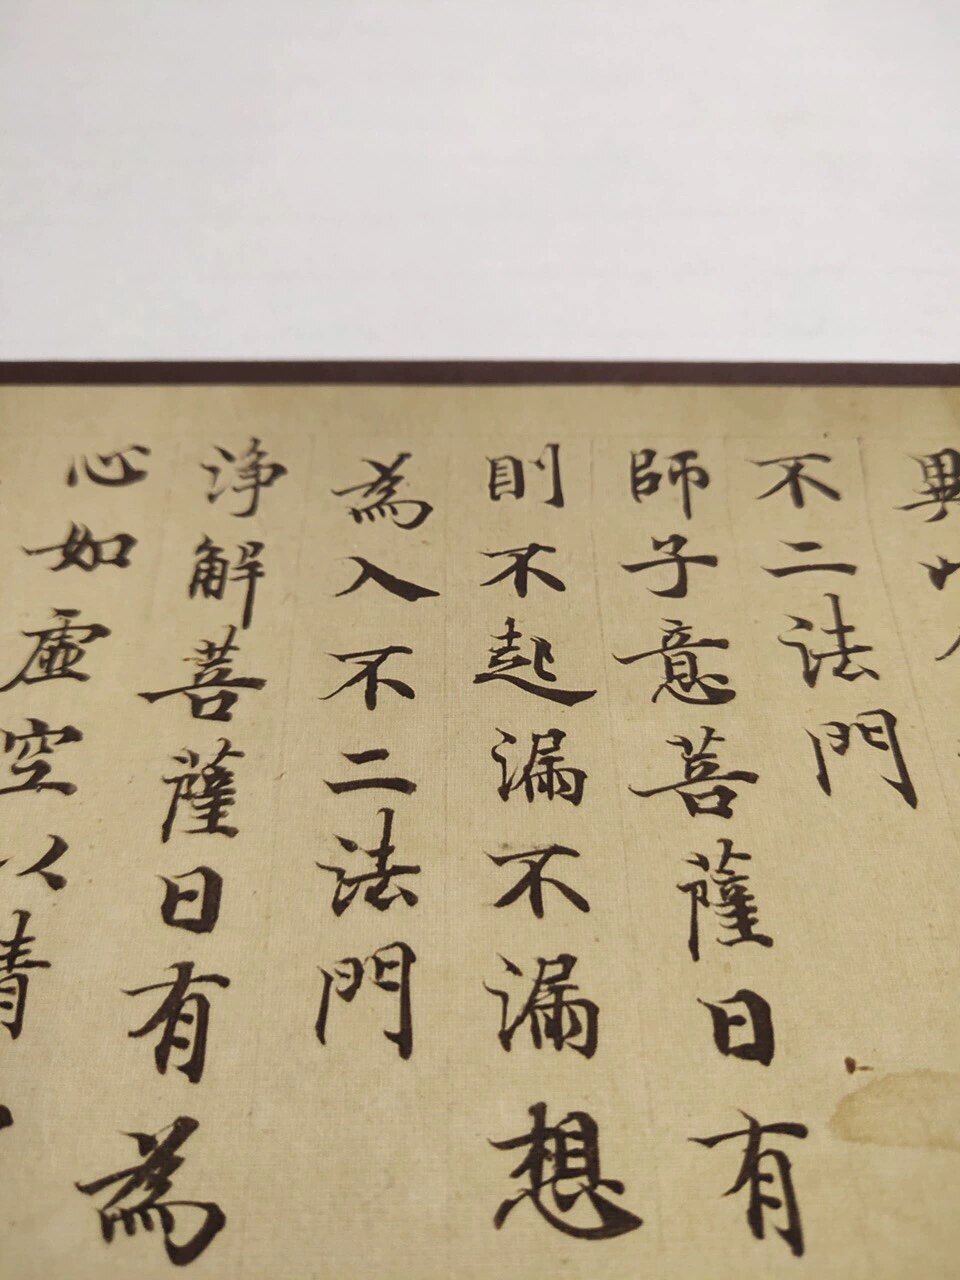 不二法門
師子意菩薩曰有
則不起漏不漏想
為入不二法門
淨解菩薩曰有為
心如虛空以清